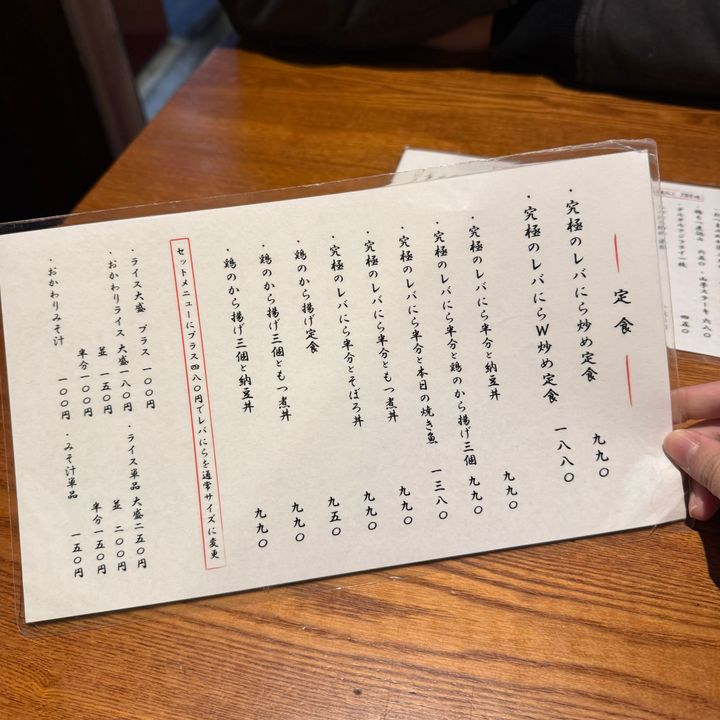 定食
・究極のレバにら炒め定食 九九〇
・究極のレバにらW炒め定食 一八八〇
・究極のレバにら半分と納豆丼 九九〇
・究極のレバにら半分と鶏のから揚げ三個 九九〇
・究極のレバにら半分と本日の焼き魚 一三八〇
・究極のレバにら半分ともつ煮丼 九九〇
・究極のレバにら半分とそぼろ丼 九九〇
・鶏のから揚げ定食 九五〇
・鶏のから揚げ三個ともつ煮丼 九九〇
・鶏のから揚げ三個と納豆丼 九九〇
セットメニューにプラス四八〇円でレバにらを通常サイズに変更
・ライス大盛 プラス 一〇〇円 ・ライス単品 大盛二五〇円
・おかわりライス 大盛一八〇円 並 二〇〇円
並 一五〇円 半分一五〇円
半分一〇〇円
・おかわりみそ汁 一〇〇円 ・みそ汁単品 一五〇円